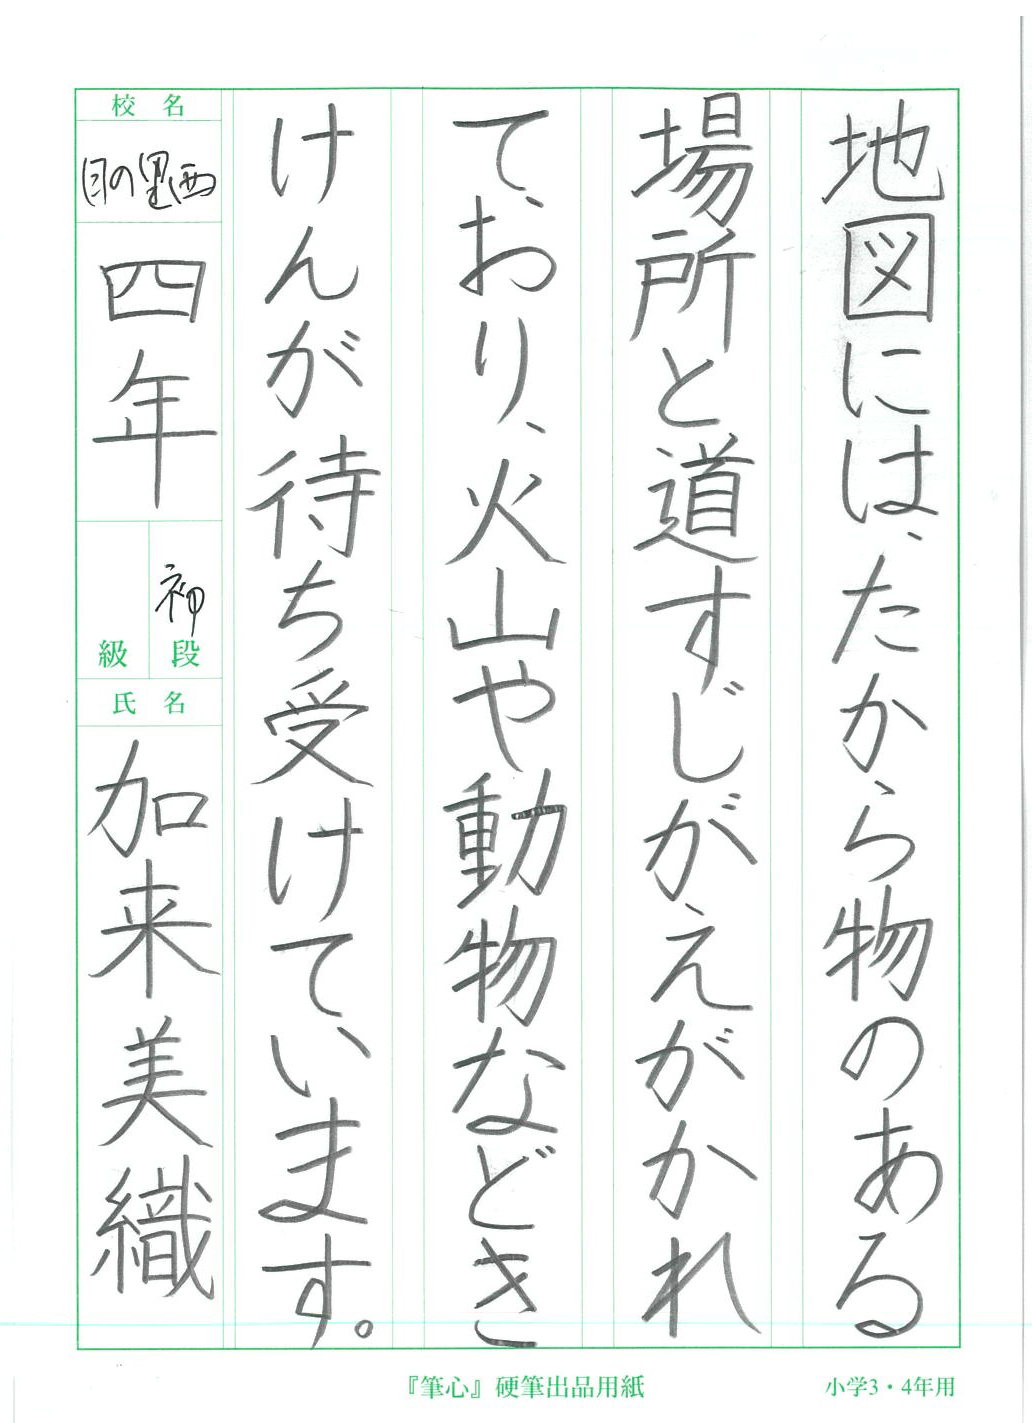 地図には、たから物のある
場所と道すじがえがかれ
ており、火山や動物などき
けんが待ち受けています。
校名
日の里西
四年
初段
級
氏名
加来美織
『筆心』硬筆出品用紙
小学3・4年用